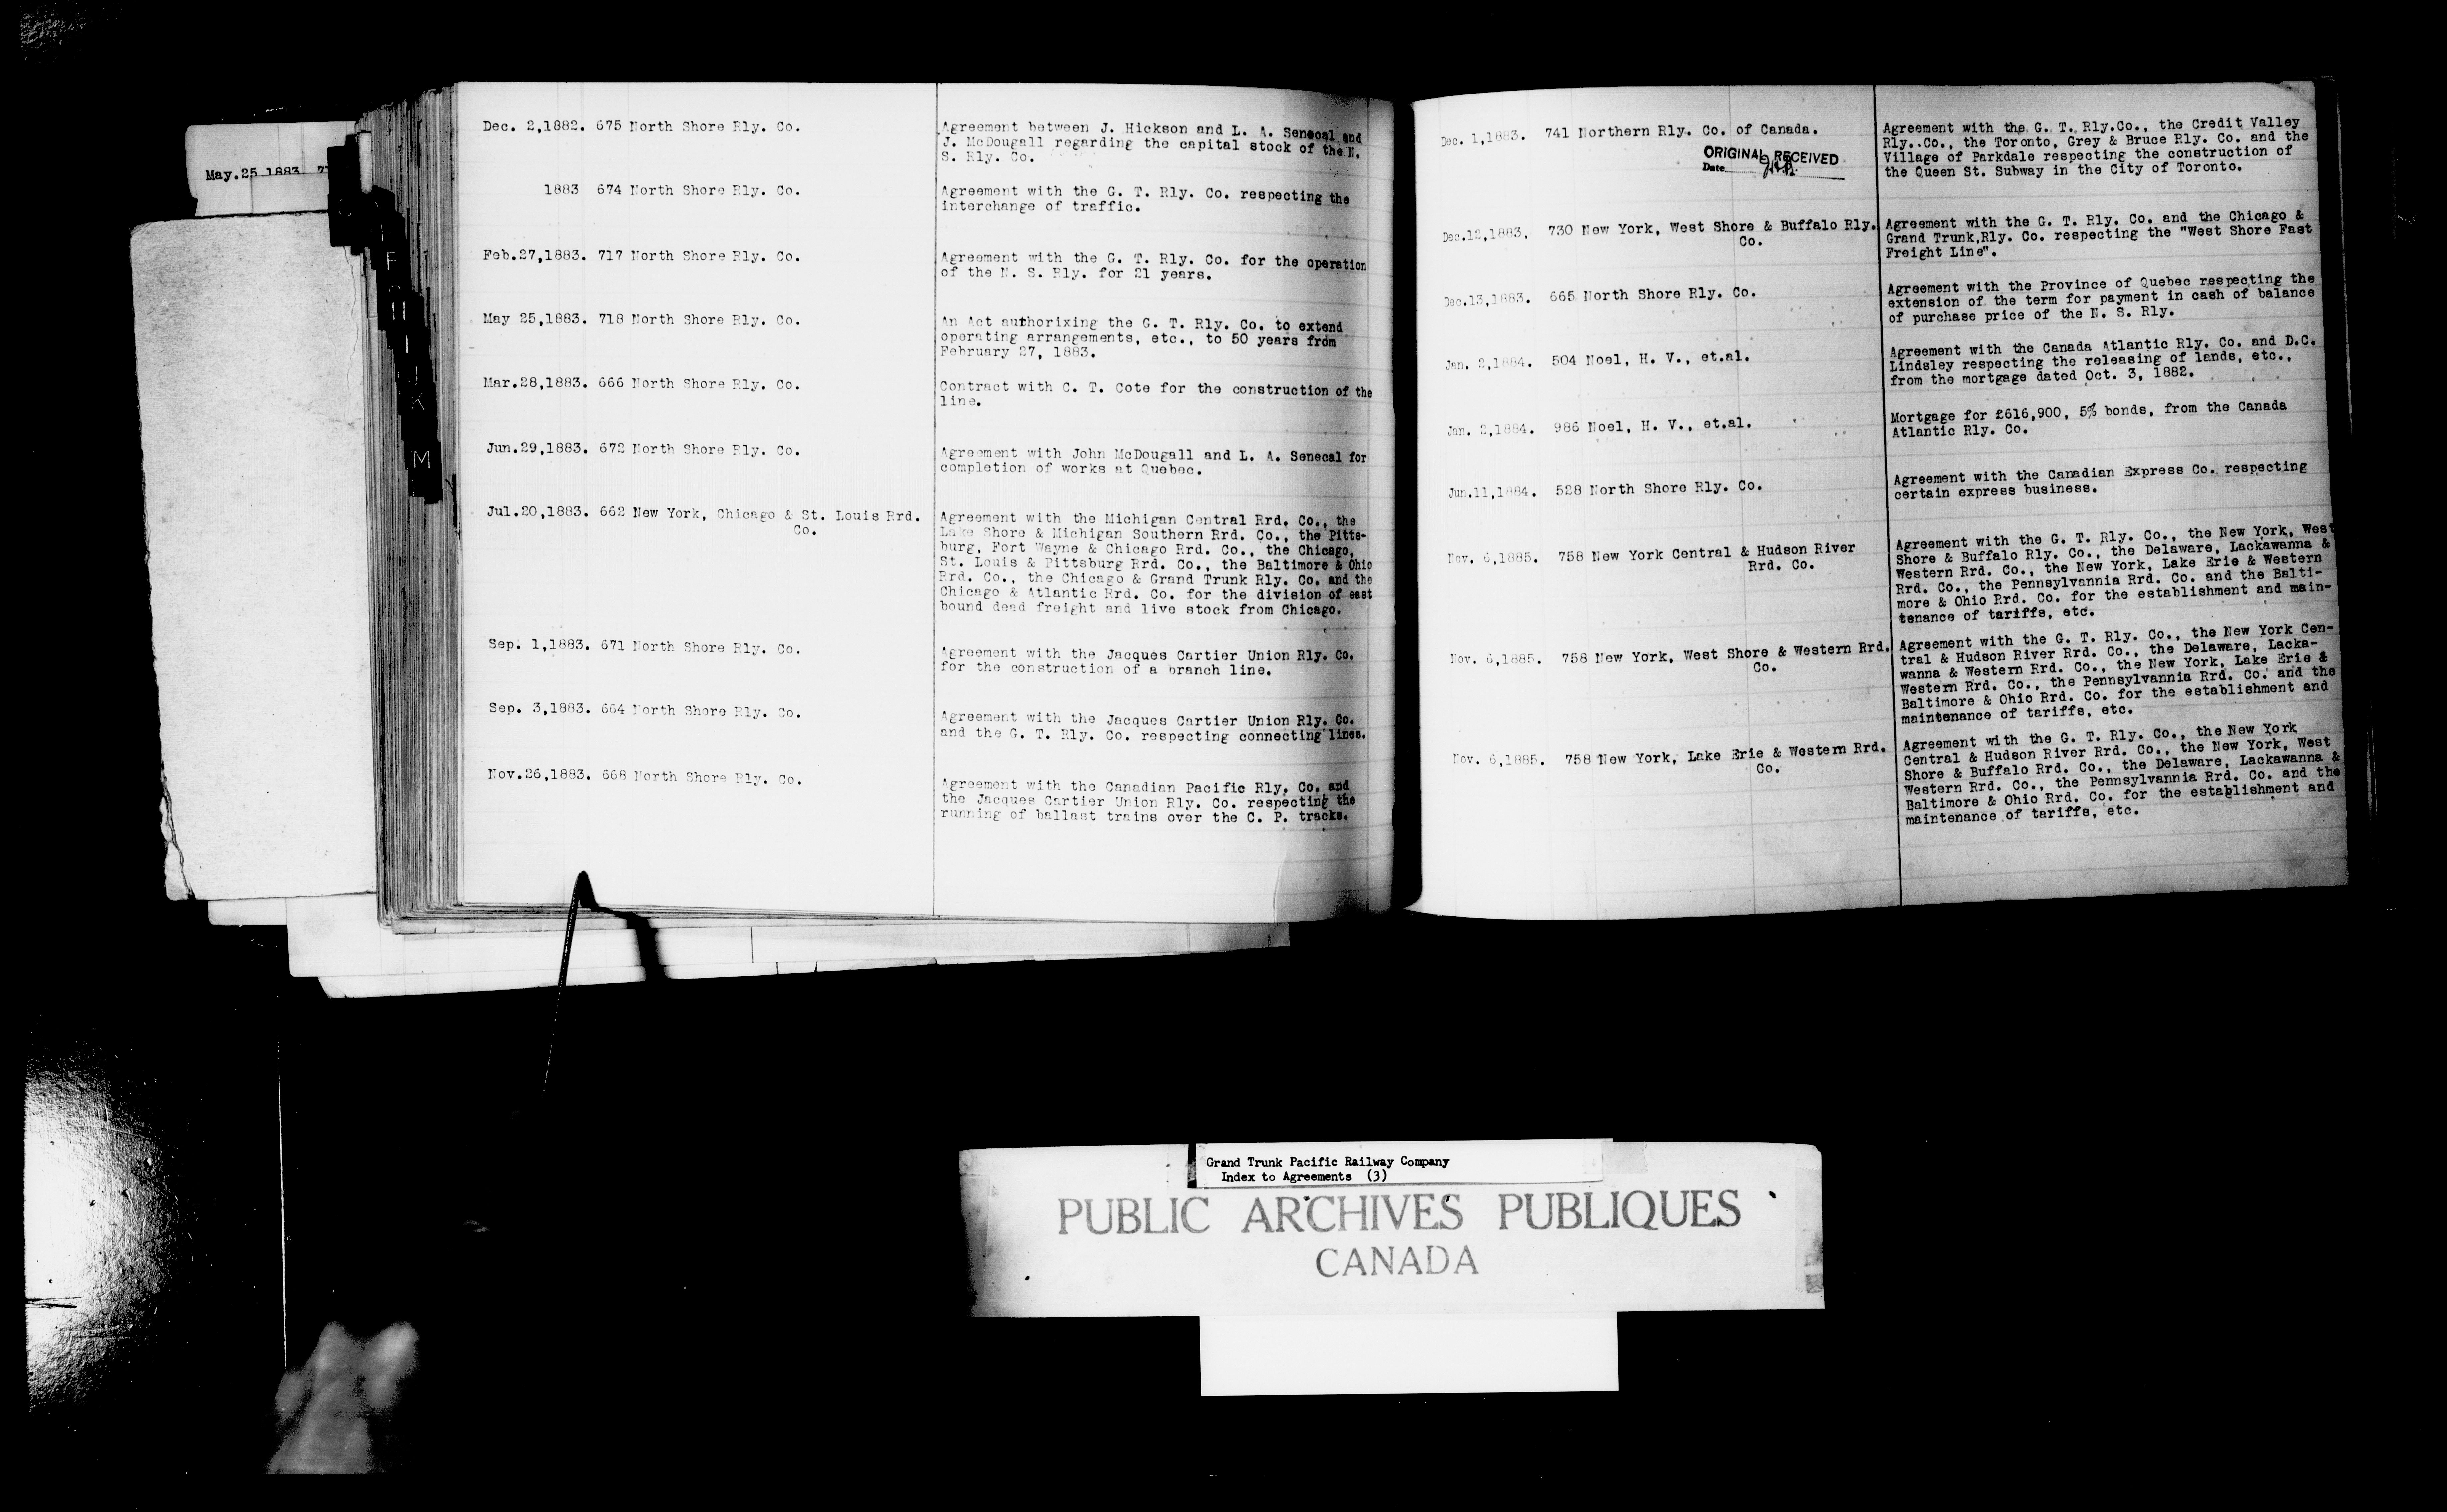 May.25 1883
F
H
I
K
M
Dec. 2,1882. 675 North Shore Rly. Co.
Agreement between J. Hickson and L. A. Senecal and
J. McDougall regarding the capital stock of the N.
S. Rly. Co.
1883 674 North Shore Rly. Co.
Agreement with the G. T. Rly. Co. respecting the
interchange of traffic.
Feb.27,1883. 717 North Shore Rly. Co.
Agreement with the G. T. Rly. Co. for the operation
of the N. S. Rly. for 21 years.
May 25,1883. 718 North Shore Rly. Co.
An Act authorixing the G. T. Rly. Co. to extend
operating arrangements, etc., to 50 years from
February 27, 1883.
Mar.28,1883. 666 North Shore Rly. Co.
Contract with C. T. Cote for the construction of the
line.
Jun.29,1883. 672 North Shore Rly. Co.
Agreement with John McDougall and L. A. Senecal for
completion of works at Quebec.
Jul.20,1883. 662 New York, Chicago & St. Louis Rrd.
Co.
Agreement with the Michigan Central Rrd. Co., the
Lake Shore & Michigan Southern Rrd. Co., the Pitts-
burg, Fort Wayne & Chicago Rrd. Co., the Chicago,
St. Louis & Pittsburg Rrd. Co., the Baltimore & Ohio
Rrd. Co., the Chicago & Grand Trunk Rly. Co. and the
Chicago & Atlantic Rrd. Co. for the division of east
bound dead freight and live stock from Chicago.
Sep. 1,1883. 671 North Shore Rly. Co.
Agreement with the Jacques Cartier Union Rly. Co.
for the construction of a branch line.
Sep. 3,1883. 664 North Shore Rly. Co.
Agreement with the Jacques Cartier Union Rly. Co.
and the G. T. Rly. Co. respecting connecting lines.
Nov.26,1883. 668 North Shore Rly. Co.
Agreement with the Canadian Pacific Rly. Co. and
the Jacques Cartier Union Rly. Co. respecting the
running of ballast trains over the C. P. tracks.
Dec. 1,1883. 741 Northern Rly. Co. of Canada.
ORIGINAL RECEIVED
Date
Agreement with the G. T. Rly.Co., the Credit Valley
Rly..Co., the Toronto, Grey & Bruce Rly. Co. and the
Village of Parkdale respecting the construction of
the Queen St. Subway in the City of Toronto.
Dec.12,1883. 730 New York, West Shore & Buffalo Rly.
Co.
Agreement with the G. T. Rly. Co. and the Chicago &
Grand Trunk Rly. Co. respecting the "West Shore Fast
Freight Line".
Dec.13,1883. 665 North Shore Rly. Co.
Agreement with the Province of Quebec respecting the
extension of the term for payment in cash of balance
of purchase price of the N. S. Rly.
Jan. 2,1884. 504 Noel, H. V., et.al.
Agreement with the Canada Atlantic Rly. Co. and D.C.
Lindsley respecting the releasing of lands, etc.,
from the mortgage dated Oct. 3, 1882.
Jan. 2,1884. 986 Noel, H. V., et.al.
Mortgage for £616,900, 5% bonds, from the Canada
Atlantic Rly. Co.
Jun.11,1884. 528 North Shore Rly. Co.
Agreement with the Canadian Express Co. respecting
certain express business.
Nov. 6,1885. 758 New York Central & Hudson River
Rrd. Co.
Agreement with the G. T. Rly. Co., the New York, West
Shore & Buffalo Rly. Co., the Delaware, Lackawanna &
Western Rrd. Co., the New York, Lake Erie & Western
Rrd. Co., the Pennsylvannia Rrd. Co. and the Balti-
more & Ohio Rrd. Co. for the establishment and main-
tenance of tariffs, etc.
Nov. 6,1885. 758 New York, West Shore & Western Rrd.
Co.
Agreement with the G. T. Rly. Co., the New York Cen-
tral & Hudson River Rrd. Co., the Delaware, Lacka-
wanna & Western Rrd. Co., the New York, Lake Erie &
Western Rrd. Co., the Pennsylvannia Rrd. Co. and the
Baltimore & Ohio Rrd. Co. for the establishment and
maintenance of tariffs, etc.
Nov. 6,1885. 758 New York, Lake Erie & Western Rrd.
Co.
Agreement with the G. T. Rly. Co., the New York
Central & Hudson River Rrd. Co., the New York, West
Shore & Buffalo Rrd. Co., the Delaware, Lackawanna &
Western Rrd. Co., the Pennsylvannia Rrd. Co. and the
Baltimore & Ohio Rrd. Co. for the establishment and
maintenance of tariffs, etc.
Grand Trunk Pacific Railway Company
Index to Agreements (3)
PUBLIC ARCHIVES PUBLIQUES
CANADA